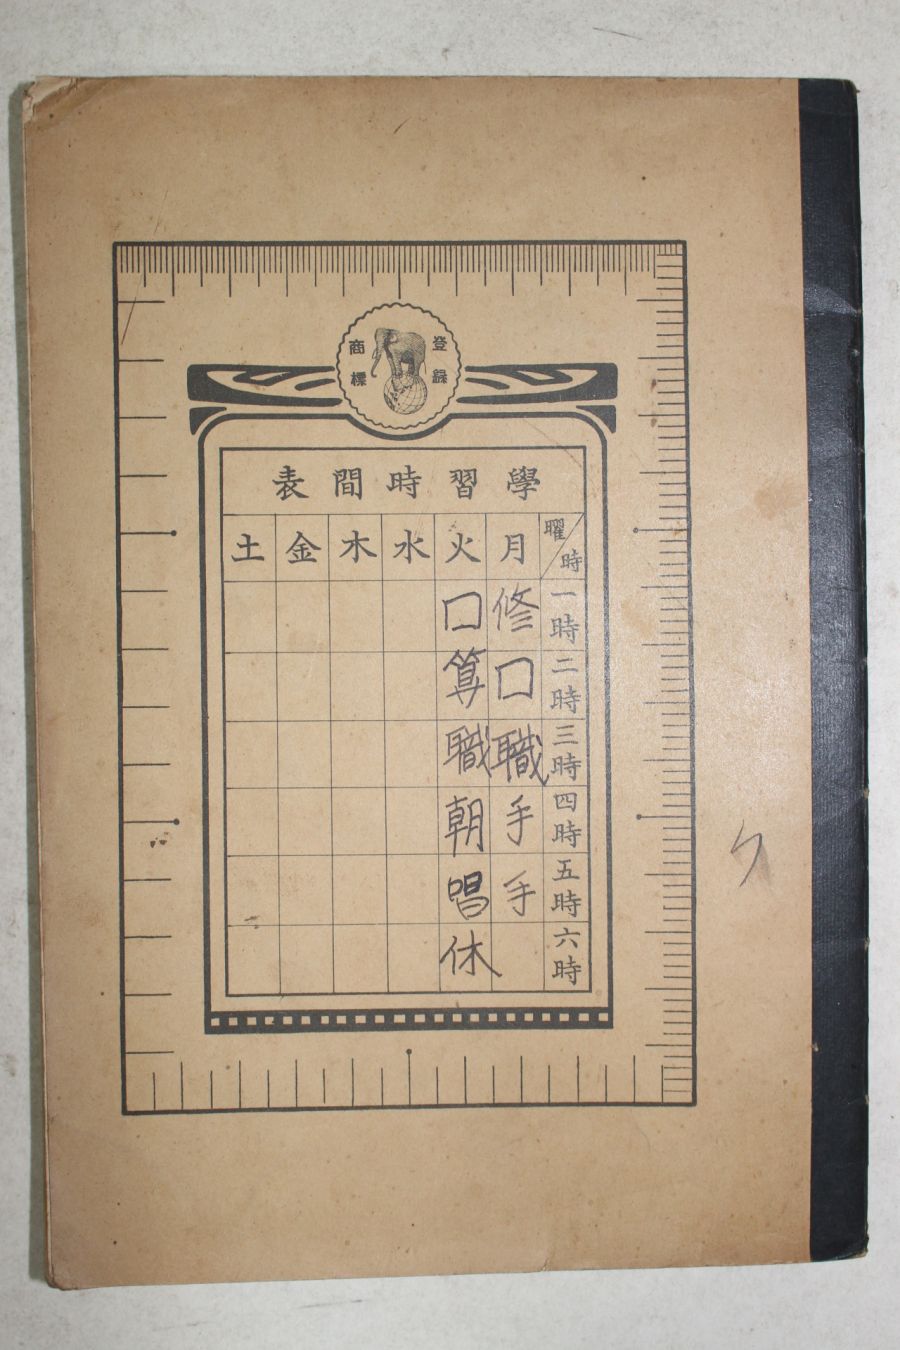 登錄
商標
學習時間表
曜 時 月 火 水 木 金 土
一時 修 口
二時 口 算
三時 職 職
四時 手 朝
五時 手 唱
六時 休